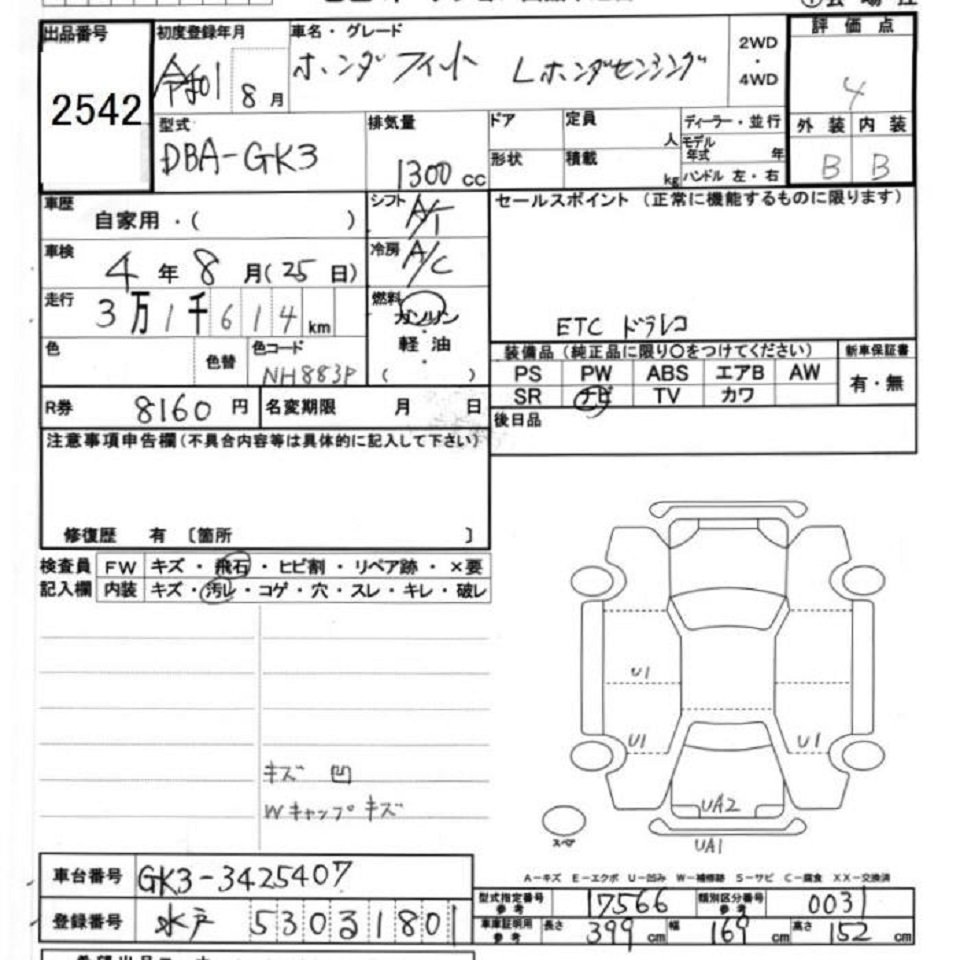 出品番号 初度登録年月 車名・グレード 2WD・4WD 評価点
2542 令和1 8月 ホンダ フィット Lホンダセンシング 4
型式 排気量 ドア 定員 人 ディーラー・並行 外装 内装
DBA-GK3 1300cc 形状 積載 kg モデル年式 年 ハンドル 左・右 B B
車歴 自家用・( ) シフト A/T セールスポイント(正常に機能するものに限ります)
車検 4年8月(25日) 冷房 A/C
走行 3万1千614km 燃料 ガソリン・軽油・( ) ETC ドラレコ
色 色替 色コード NH883P 装備品(純正品に限り○をつけてください) 新車保証書
PS PW ABS エアB AW 有・無
SR ナビ TV カワ
R券 8160円 名変期限 月 日 後日品
注意事項申告欄(不具合内容等は具体的に記入して下さい)
修復歴 有 〔箇所 〕
検査員 FW キズ・飛石・ヒビ割・リペア跡・×要
記入欄 内装 キズ・汚レ・コゲ・穴・スレ・キレ・破レ
U1
U1 U1
キズ 凹
Wキャップキズ
UA2
スペア UA1
A-キズ E-エクボ U-凹み W-補修跡 S-サビ C-腐食 XX-交換済
車台番号 GK3-3425407
型式指定番号参考 17566 類別区分番号参考 0031
登録番号 水戸 530 る 1801
車庫証明用参考 長さ 399cm 幅 169cm 高さ 152cm